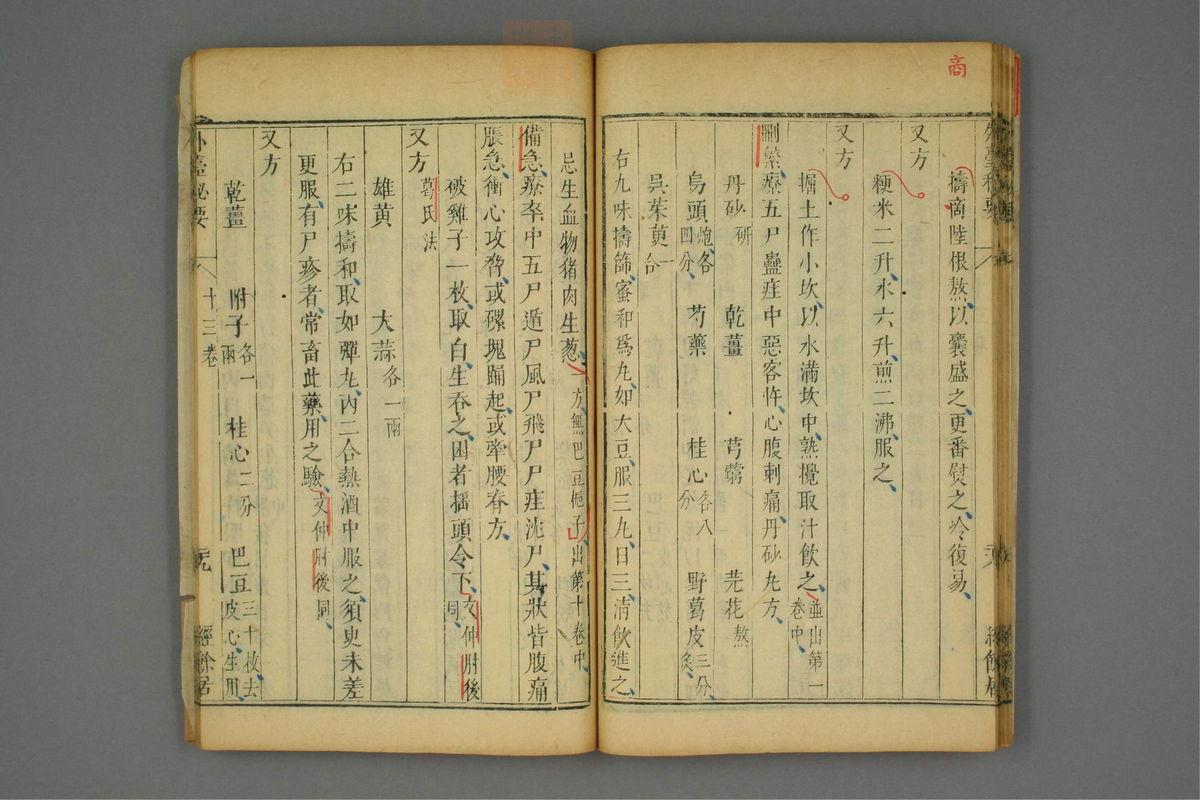 商
擣商陸根熬以囊盛之更番熨之冷復易
又方
粳米二升水六升煎二沸服之
又方
掘土作小坎以水滿坎中熟攪取汁飲之並出第一卷中
刪繁療五尸蠱疰中惡客忤心腹刺痛丹砂丸方
丹砂研 乾薑 芎藭 芫花熬
烏頭炮各四分 芍藥 桂心各八分 野葛皮三分炙
吳茱萸一合
右九味擣篩蜜和爲丸如大豆服三丸日三清飲進之
忌生血物猪肉生葱一方無巴豆梔子出第十卷中
備急療卒中五尸遁尸風尸飛尸尸疰沈尸其狀皆腹痛
脹急衝心攻脅或磥塊踊起或牽腰脊方
破雞子一枚取白生吞之困者搖頭令下文仲肘後同
又方葛氏法
雄黃 大蒜各一兩
右二味擣和取如彈丸內二合熱酒中服之須臾未差
更服有尸疹者常畜此藥用之驗文仲肘後同
又方
乾薑 附子各一兩 桂心二分 巴豆三十枚去皮心生用
外臺秘要 十三卷 經餘居